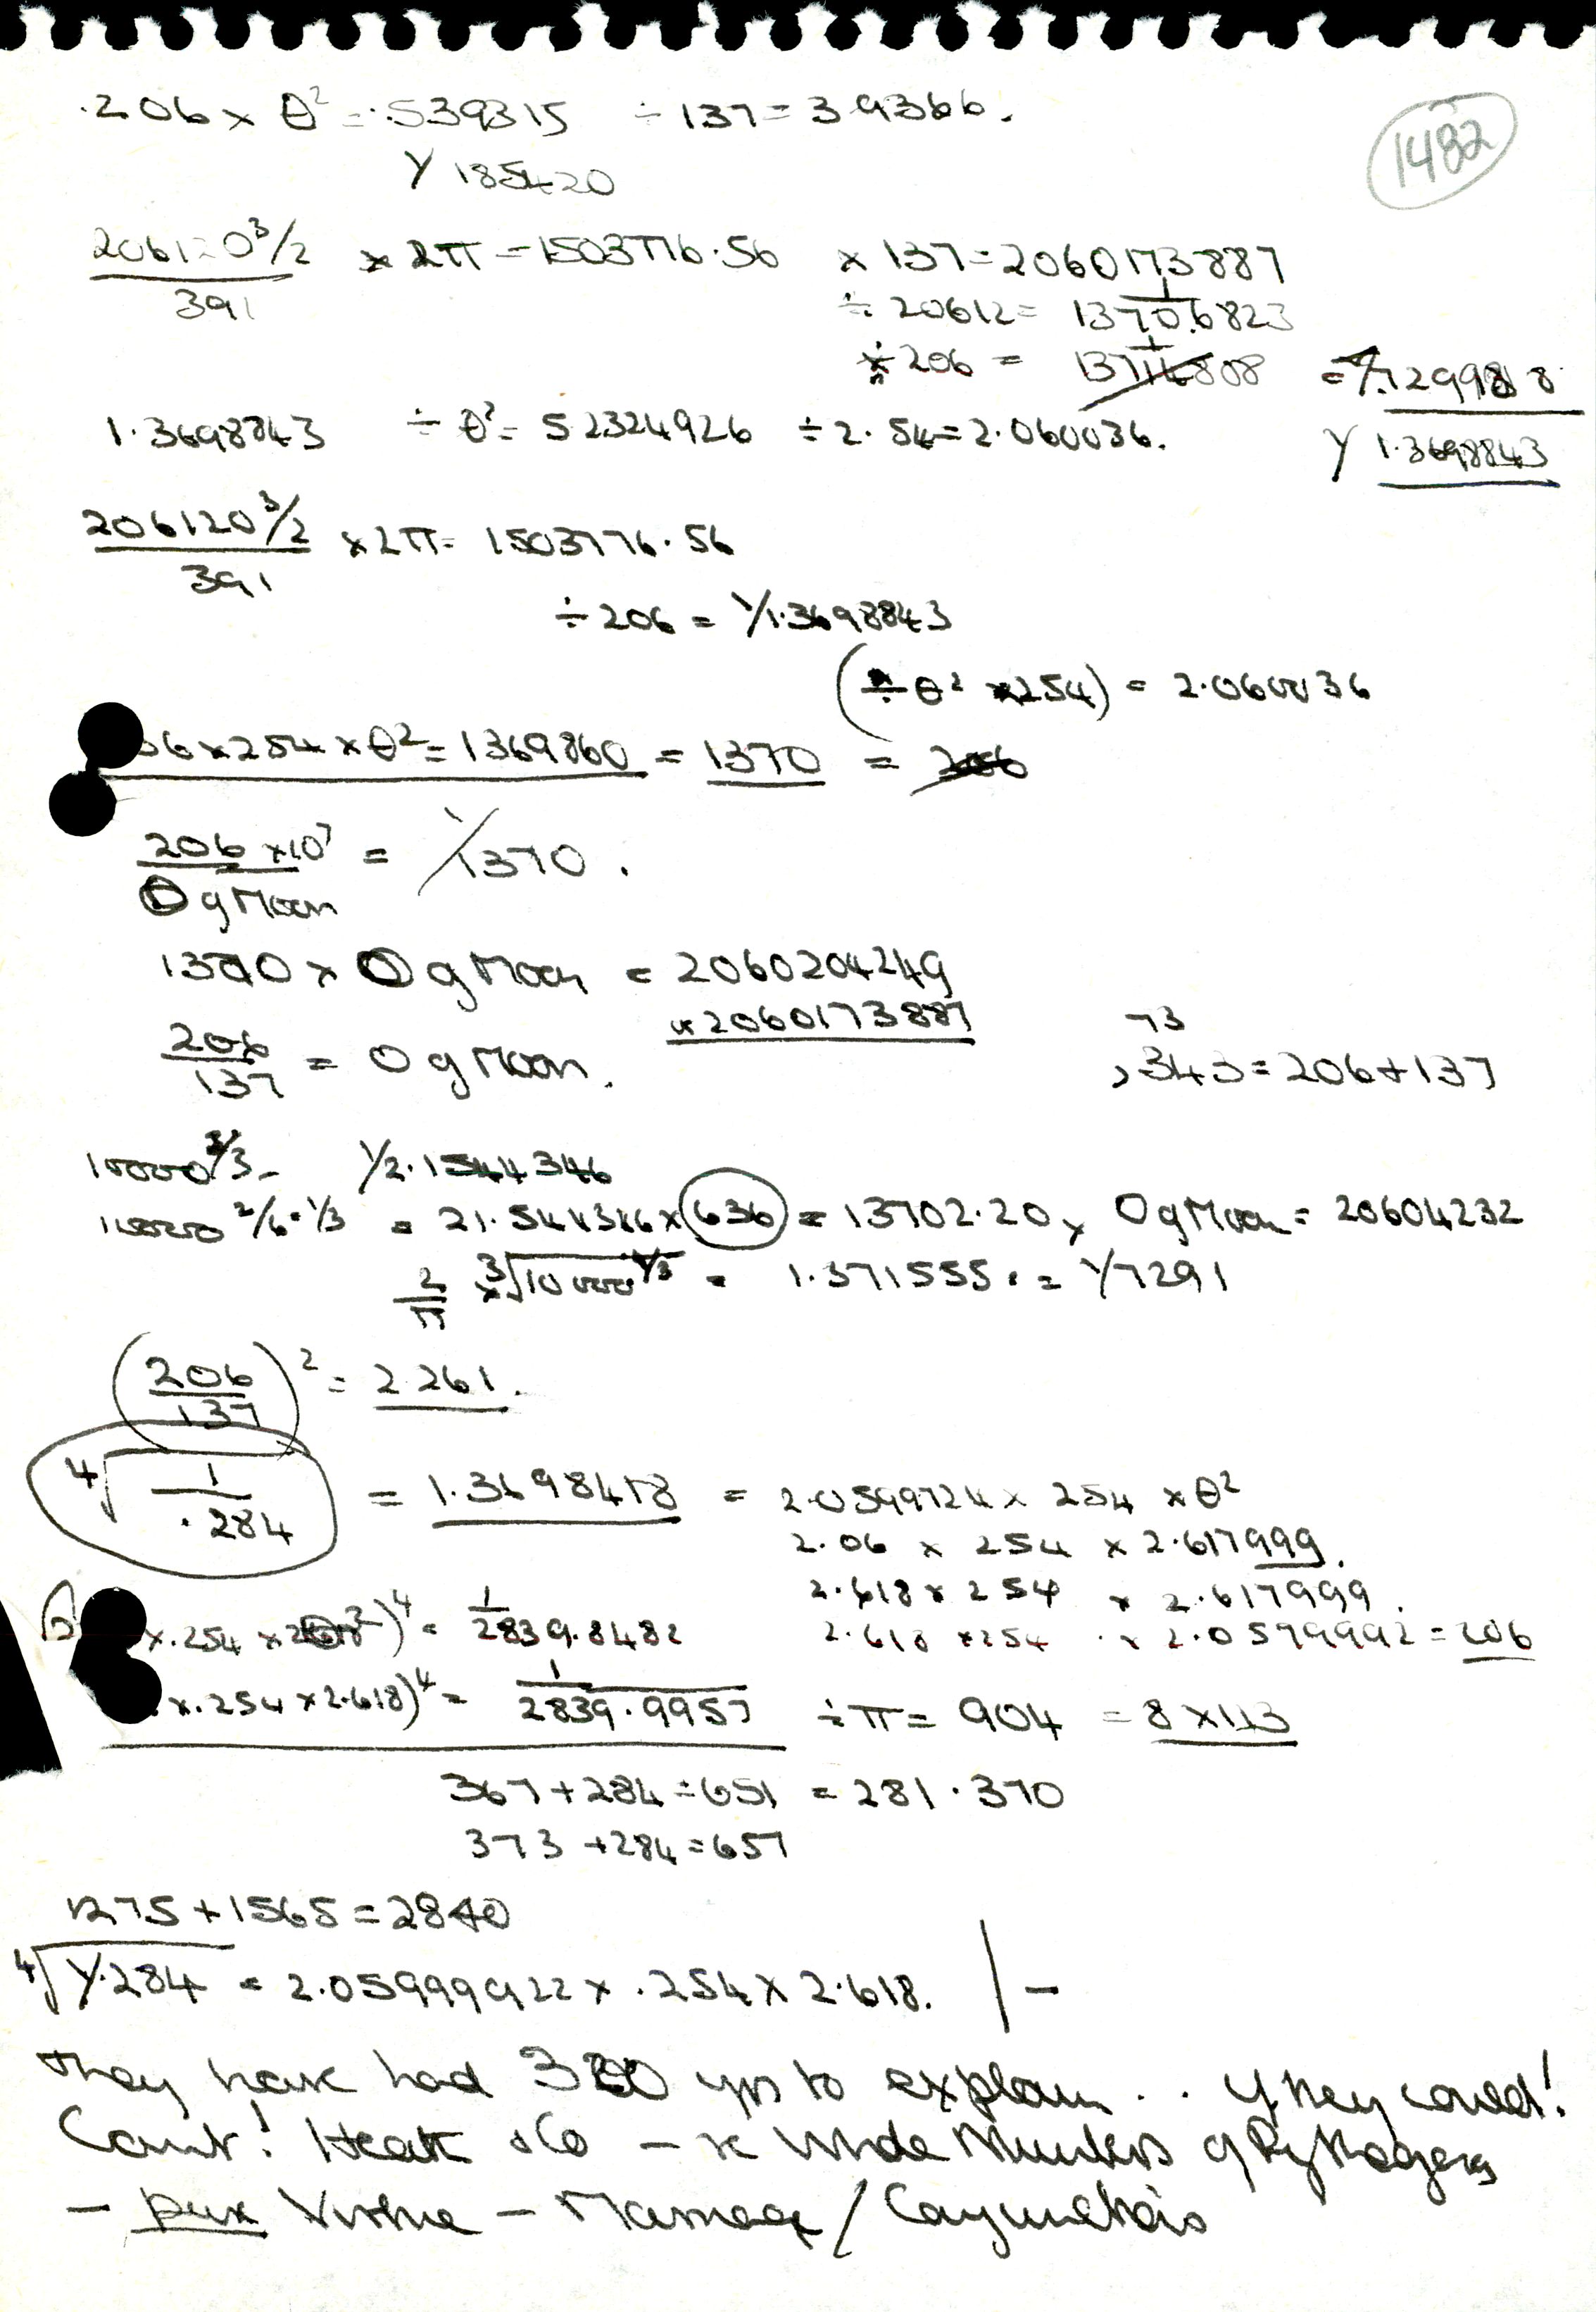 .206 × θ² = .539315 ÷ 137 = 39366.
1482
Y 185420
206120^3/2 / 391 × 2π = 1503776.56 × 137 = 2060173887
÷ 20612 = 1/1370.6823
÷ 206 = = 7.299818
1.3698843 ÷ θ² = 52324926 ÷ 2.54 = 2.060036.
Y 1.3698843
206120^3/2 / 391 × 2π = 1503776.56
÷ 206 = 1/1.3698843
(÷ θ² × 254) = 2.060036
06 × 254 × θ² = 1369860 = 1370 = 206
206 × 10⁷ / O g Moon = 1/1370.
1370 × O g Moon = 2060204249
or 2060173887
206/137 = O g Moon.
73
343 = 206 + 137
10000^2/3 - 1/2.1544346
10000^2/6=1/3 = 21.544346 × 636 = 13702.20 × O g Moon = 20604232
2/π × ³√10000^1/3 = 1.371555. = 1/7291
(206/137)² = 2.261.
⁴√1/.284 = 1.3698418 = 2.0599724 × 254 × θ²
2.06 × 254 × 2.617999.
2.618 × 254 × 2.617999.
× .254 × θ²)⁴ = 1/2839.8482
2.618 × 254 × 2.0599992 = 206
× .254 × 2.618)⁴ = 1/2839.9957 ÷ π = 904 = 8 × 113
367 + 284 = 651 = 281.370
373 + 284 = 657
1275 + 1565 = 2840
⁴√1/.284 = 2.05999922 × .254 × 2.618. | -
They have had 300 yrs to explain .. if they could!
Can't! Heath also - Whole Numbers of Pythagoras
- pure Virtue - Marriage /